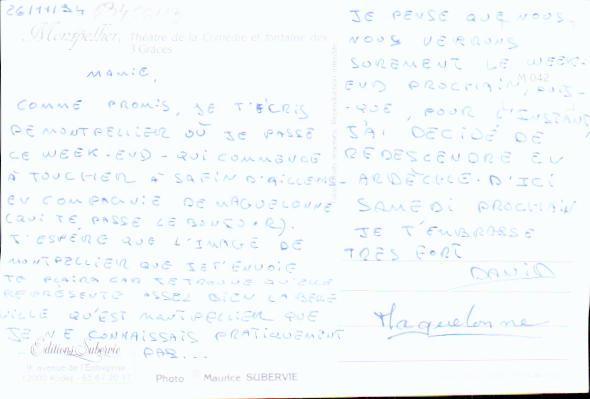 26/11/94
Montpellier, Théâtre de la Comédie et fontaine des
3 Grâces
MAMIE,
COMME PROMIS, JE T'ÉCRIS
DE MONTPELLIER OÙ JE PASSE
LE WEEK-END - QUI COMMENCE
À TOUCHER À SA FIN D'AILLEURS
EN COMPAGNIE DE MAGUELONNE
(QUI TE PASSE LE BONJOUR).
J'ESPÈRE QUE L'IMAGE DE
MONTPELLIER QUE JE T'ENVOIE
TE PLAIRA CAR JE TROUVE QU'ELLE
REPRÉSENTE ASSEZ BIEN LA BELLE
VILLE QU'EST MONTPELLIER QUE
JE NE CONNAISSAIS PRATIQUEMENT
PAS...
Editions Subervie
9, avenue de l'Entreprise
12000 Rodez
Photo Maurice SUBERVIE
JE PENSE QUE NOUS
NOUS VERRONS
SÛREMENT LE WEEK-
END PROCHAIN, PUIS-
M 042
-QUE, POUR L'INSTANT,
J'AI DÉCIDÉ DE
REDESCENDRE EN
ARDÈCHE. D'ICI
SAMEDI PROCHAIN
JE T'EMBRASSE
TRES FORT
DAVID
Maguelonne